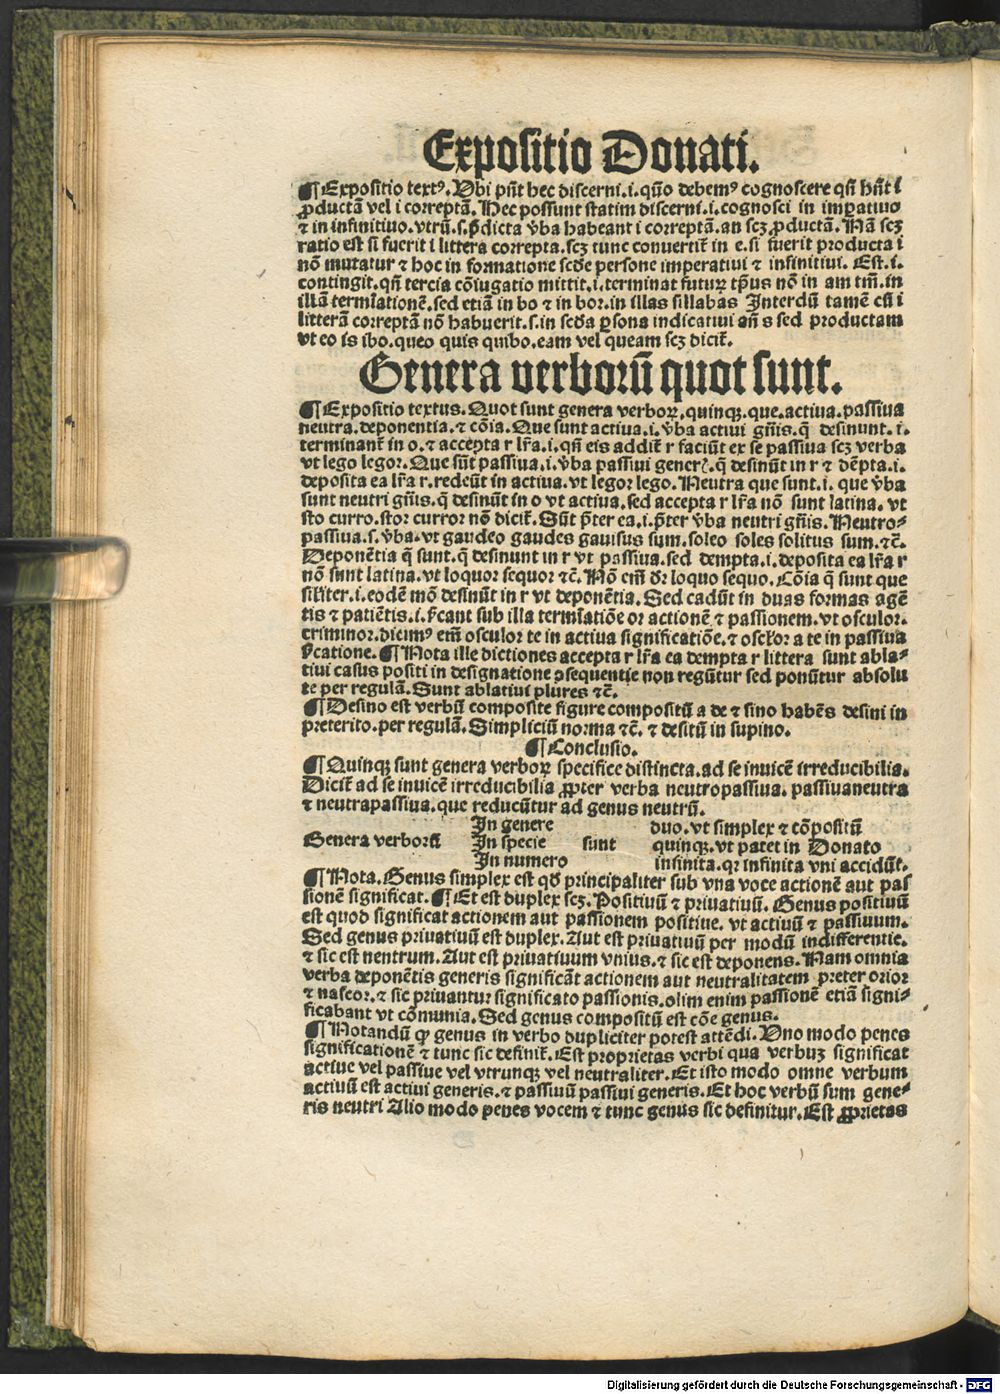 Expositio Donati.
¶ Expositio textꝰ. Ubi pn̄t hec discerni .i. quō debemꝰ cognoscere qn̄ hn̄t i
ꝓductā vel i correptā. Hec possunt statim discerni .i. cognosci in imꝑatiuo
⁊ in infinitiuo. vtrū .s. p̄dicta v̄ba habeant i correptā. an scꝫ ꝓductā. Nā scꝫ
ratio est si fuerit i littera correpta. scꝫ tunc conuertit̄ in e. si fuerit producta i
nō mutatur ⁊ hoc in formatione scd̄e persone imperatiui ⁊ infinitiui. Est .i.
contingit. qn̄ tercia cōiugatio mittit .i. terminat futurꝝ tp̄us nō in am tm̄. in
illā termīationē. sed etiā in bo ⁊ in bor. in illas sillabas Interdū tamē cū i
litterā correptā nō habuerit .s. in scd̄a ꝑsona indicatiui an̄ s sed productam
vt eo is ibo. queo quis quibo. eam vel queam scꝫ dicit̄.
Genera uerborū quot sunt.
¶ Expositio textus. Quot sunt genera verboꝝ. quinqꝫ. que. actiua. passiua
neutra. deponentia. ⁊ cōia. Que sunt actiua .i. v̄ba actiui gn̄is. q̄ desinunt .i.
terminant̄ in o. ⁊ accepta r lr̄a .i. qn̄ eis addit̄ r faciūt ex se passiua scꝫ verba
vt lego legor. Que sūt passiua .i. v̄ba passiui generꝭ. q̄ desinūt in r ⁊ dēpta .i.
deposita ea lr̄a r. redeūt in actiua. vt legor lego. Neutra que sunt .i. que v̄ba
sunt neutri gn̄is. q̄ desinūt in o vt actiua. sed accepta r lr̄a nō sunt latina. vt
sto curro. stor curror nō dicit̄. Sūt p̄ter ea .i. p̄ter v̄ba neutri gn̄is. Neutro⸗
passiua .s. v̄ba. vt gaudeo gaudes gauisus sum. soleo soles solitus sum. ⁊c̄.
Deponētia q̄ sunt. q̄ desinunt in r vt passiua. sed dempta .i. deposita ea lr̄a r
nō sunt latina. vt loquor sequor ⁊c̄. Nō em̄ dr̄ loquo sequo. Cōia q̄ sunt que
siliter .i. eodē mō desinūt in r vt deponētia. Sed cadūt in duas formas agē
tis ⁊ patiētis .i. sīcant sub illa termīatiōe or actionē ⁊ passionem. vt osculor.
criminor. dicimꝰ em̄ osculor te in actiua significatiōe. ⁊ oscl̄or a te in passiua
sīcatione. ¶ Nota ille dictiones accepta r lr̄a ea dempta r littera sunt abla⸗
tiui casus positi in designatione ꝯsequentie non regūtur sed ponūtur absolu
te per regulā. Sunt ablatiui plures ⁊c̄.
¶ Desino est verbū composite figure compositū a de ⁊ sino habēs desini in
preterito. per regulā. Simpliciū norma ⁊c̄. ⁊ desitū in supino.
¶ Conclusio.
¶ Quinqꝫ sunt genera verboꝝ specifice distincta. ad se inuicē irreducibilia.
Dicit̄ ad se inuicē irreducibilia ꝓpter verba neutropassiua. passiuaneutra
⁊ neutrapassiua. que reducūtur ad genus neutrū.
In genere duo. vt simplex ⁊ cōpositū
Genera verborū In specie sunt quinqꝫ. vt patet in Donato
In numero infinita. qꝛ infinita vni accidūt.
¶ Nota. Genus simplex est qd̄ principaliter sub vna voce actionē aut pas
sionē significat. ¶ Et est duplex scꝫ. Positiuū ⁊ priuatiuū. Genus positiuū
est quod significat actionem aut passionem positiue. vt actiuū ⁊ passiuum.
Sed genus priuatiuū est duplex. Aut est priuatiuū per modū indifferentie.
⁊ sic est neutrum. Aut est priuatiuum vnius. ⁊ sic est deponens. Nam omnia
verba deponētis generis significāt actionem aut neutralitatem preter orior
⁊ nascor. ⁊ sic priuantur significato passionis. olim enim passionē etiā signi⸗
ficabant vt cōmunia. Sed genus compositū est cōe genus.
¶ Notandū ꝙ genus in verbo dupliciter potest attēdi. Uno modo penes
significationē ⁊ tunc sic definit̄. Est proprietas verbi qua verbuꝫ significat
actiue vel passiue vel vtrunqꝫ vel neutraliter. Et isto modo omne verbum
actiuū est actiui generis. ⁊ passiuū passiui generis. Et hoc verbū sum gene⸗
ris neutri Alio modo penes vocem ⁊ tunc genus sic definitur. Est ꝓprietas
Digitalisierung gefördert durch die Deutsche Forschungsgemeinschaft - DFG